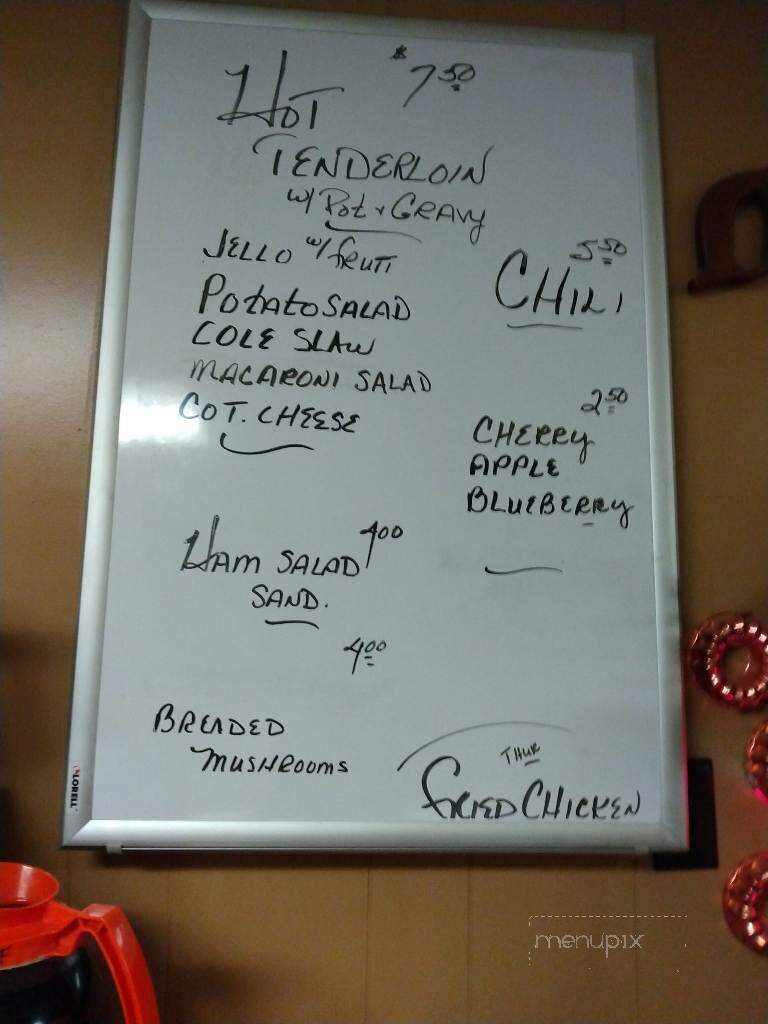 $7.50
HOT
TENDERLOIN
w/ Pot + GRAVY
JELLO w/ fRUIT
Potato SALAD
COLE SLAW
MACARONI SALAD
COT. CHEESE
5.50
CHILI
2.50
CHERRY
APPLE
BLUEBERRY
HAM SALAD 4.00
SAND.
4.00
BREADED
MUSHROOMS
THUR
FRIED CHICKEN
LORELL
menupix